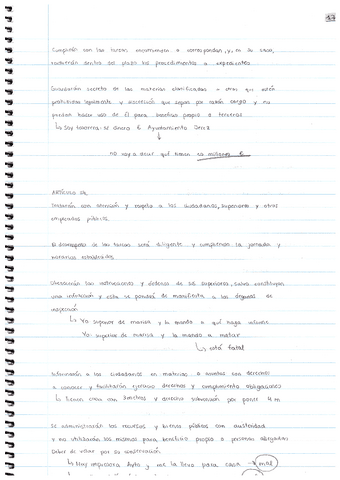 17
Cumplirán con las tareas encomienden o correspondan, y, en su caso,
resolverán dentro del plazo los procedimientos o expedientes
Guardarán secreto de las materias clasificadas u otras que estén
prohibidas legalmente y discreción que sepan por razón cargo y no
puedan hacer uso de él para beneficio propio o terceros
↳ Soy tesorera: se dinero € Ayuntamiento
no voy a decir que tienen millones €
ARTÍCULO 54
Tratarán con atención y respeto a los ciudadanos, superiores y otros
empleados públicos
El desempeño de las tareas será diligente y cumpliendo la jornada y
horarios establecidos
Obedecerán las instrucciones y órdenes de sus superiores, salvo constituyan
una infracción y esta se pondrá de manifiesto a los órganos de
inspección
↳ Yo superior de marisa y la mando a que haga informe
Yo superior de marisa y la mando a matar
↳ está fatal
Informarán a los ciudadanos en materias o asuntos con derecho
a conocer y facilitarán ejercicio derechos y cumplimiento obligaciones
↳ tienen chico con y derecho subvención por poner
Se administrarán los recursos y bienes públicos con austeridad
y no utilizarán los mismos para beneficio propio o personas allegadas
Deber de velar por su conservación
↳ Hay impresora Ayto y me la llevo para casa → mal